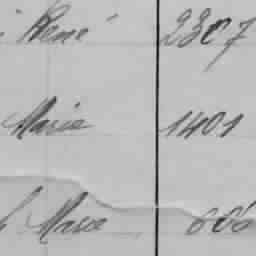 René 2307
Marie 1401
Marie 606